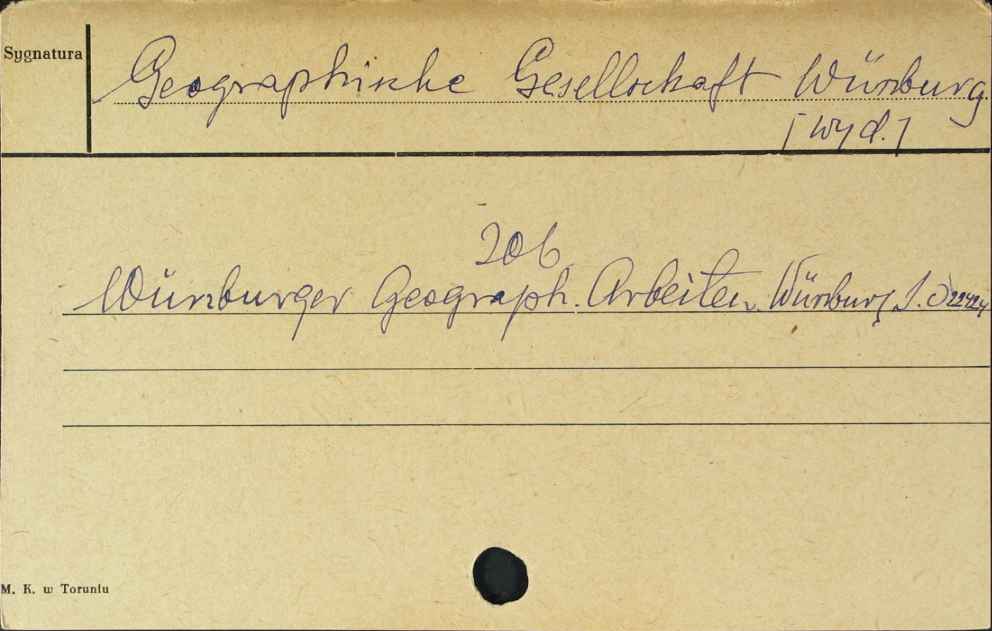 Sygnatura
Geographische Gesellschaft Würzburg
[wyd.]
Zob
Würzburger Geograph. Arbeiten. Würzburg S.
M. K. w Toruniu